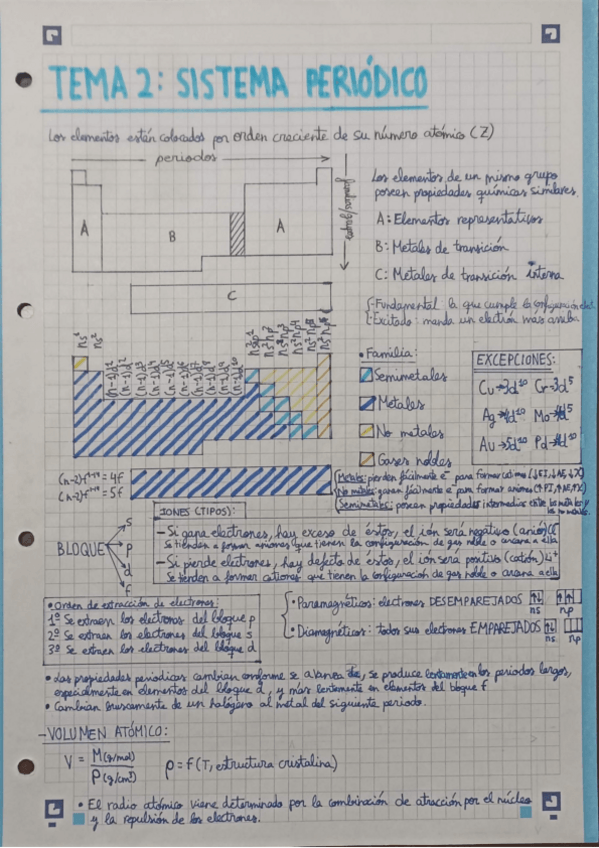 TEMA 2: SISTEMA PERIÓDICO
Los elementos están colocados por orden creciente de su número atómico (Z)
periodos
familias/grupos
A
B
A
C
Los elementos de un mismo grupo
poseen propiedades químicas similares.
A: Elementos representativos
B: Metales de transición
C: Metales de transición interna
-Fundamental: la que cumple la configuración elect.
-Excitado: manda un electrón más arriba
ns¹
ns²
(n-1)d¹
(n-1)d²
(n-1)d³
(n-1)d⁴
(n-1)d⁵
(n-1)d⁶
(n-1)d⁷
(n-1)d⁸
(n-1)d⁹
(n-1)d¹⁰
ns²p¹
ns²p²
ns²p³
ns²p⁴
ns²p⁵
ns²p⁶
• Familia:
Semimetales
Metales
No metales
Gases nobles
EXCEPCIONES:
Cu→3d¹⁰ Cr→3d⁵
Ag→4d¹⁰ Mo→4d⁵
Au→5d¹⁰ Pd→4d¹⁰
= 4f
= 5f
Metales: pierden fácilmente e⁻ para formar cationes
No metales: ganan fácilmente e⁻ para formar aniones
Semimetales: poseen propiedades intermedias entre los metales y
los no metales.
BLOQUE
s
p
d
f
IONES (TIPOS):
- Si gana electrones, hay exceso de éstos, el ión será negativo (anión)
Se tienden a formar aniones que tienen la configuración de gas noble o cercana a ella
- Si pierde electrones, hay defecto de éstos, el ión será positivo (catión) Li⁺
Se tienden a formar cationes que tienen la configuración de gas noble o cercana a ella
• Orden de extracción de electrones:
1º Se extraen los electrones del bloque p
2º Se extraen los electrones del bloque s
3º Se extraen los electrones del bloque d
• Paramagnéticos: electrones DESEMPAREJADOS
ns np
• Diamagnéticos: todos sus electrones EMPAREJADOS
ns np
• Las propiedades periódicas cambian conforme se avanza, se produce lentamente en los periodos largos,
especialmente en elementos del bloque d, y más lentamente en elementos del bloque f
• Cambian bruscamente de un halógeno al metal del siguiente periodo.
- VOLUMEN ATÓMICO:
V = M(g/mol) / ρ(g/cm³) ρ = f(T, estructura cristalina)
• El radio atómico viene determinado por la combinación de atracción por el núcleo
y la repulsión de los electrones.